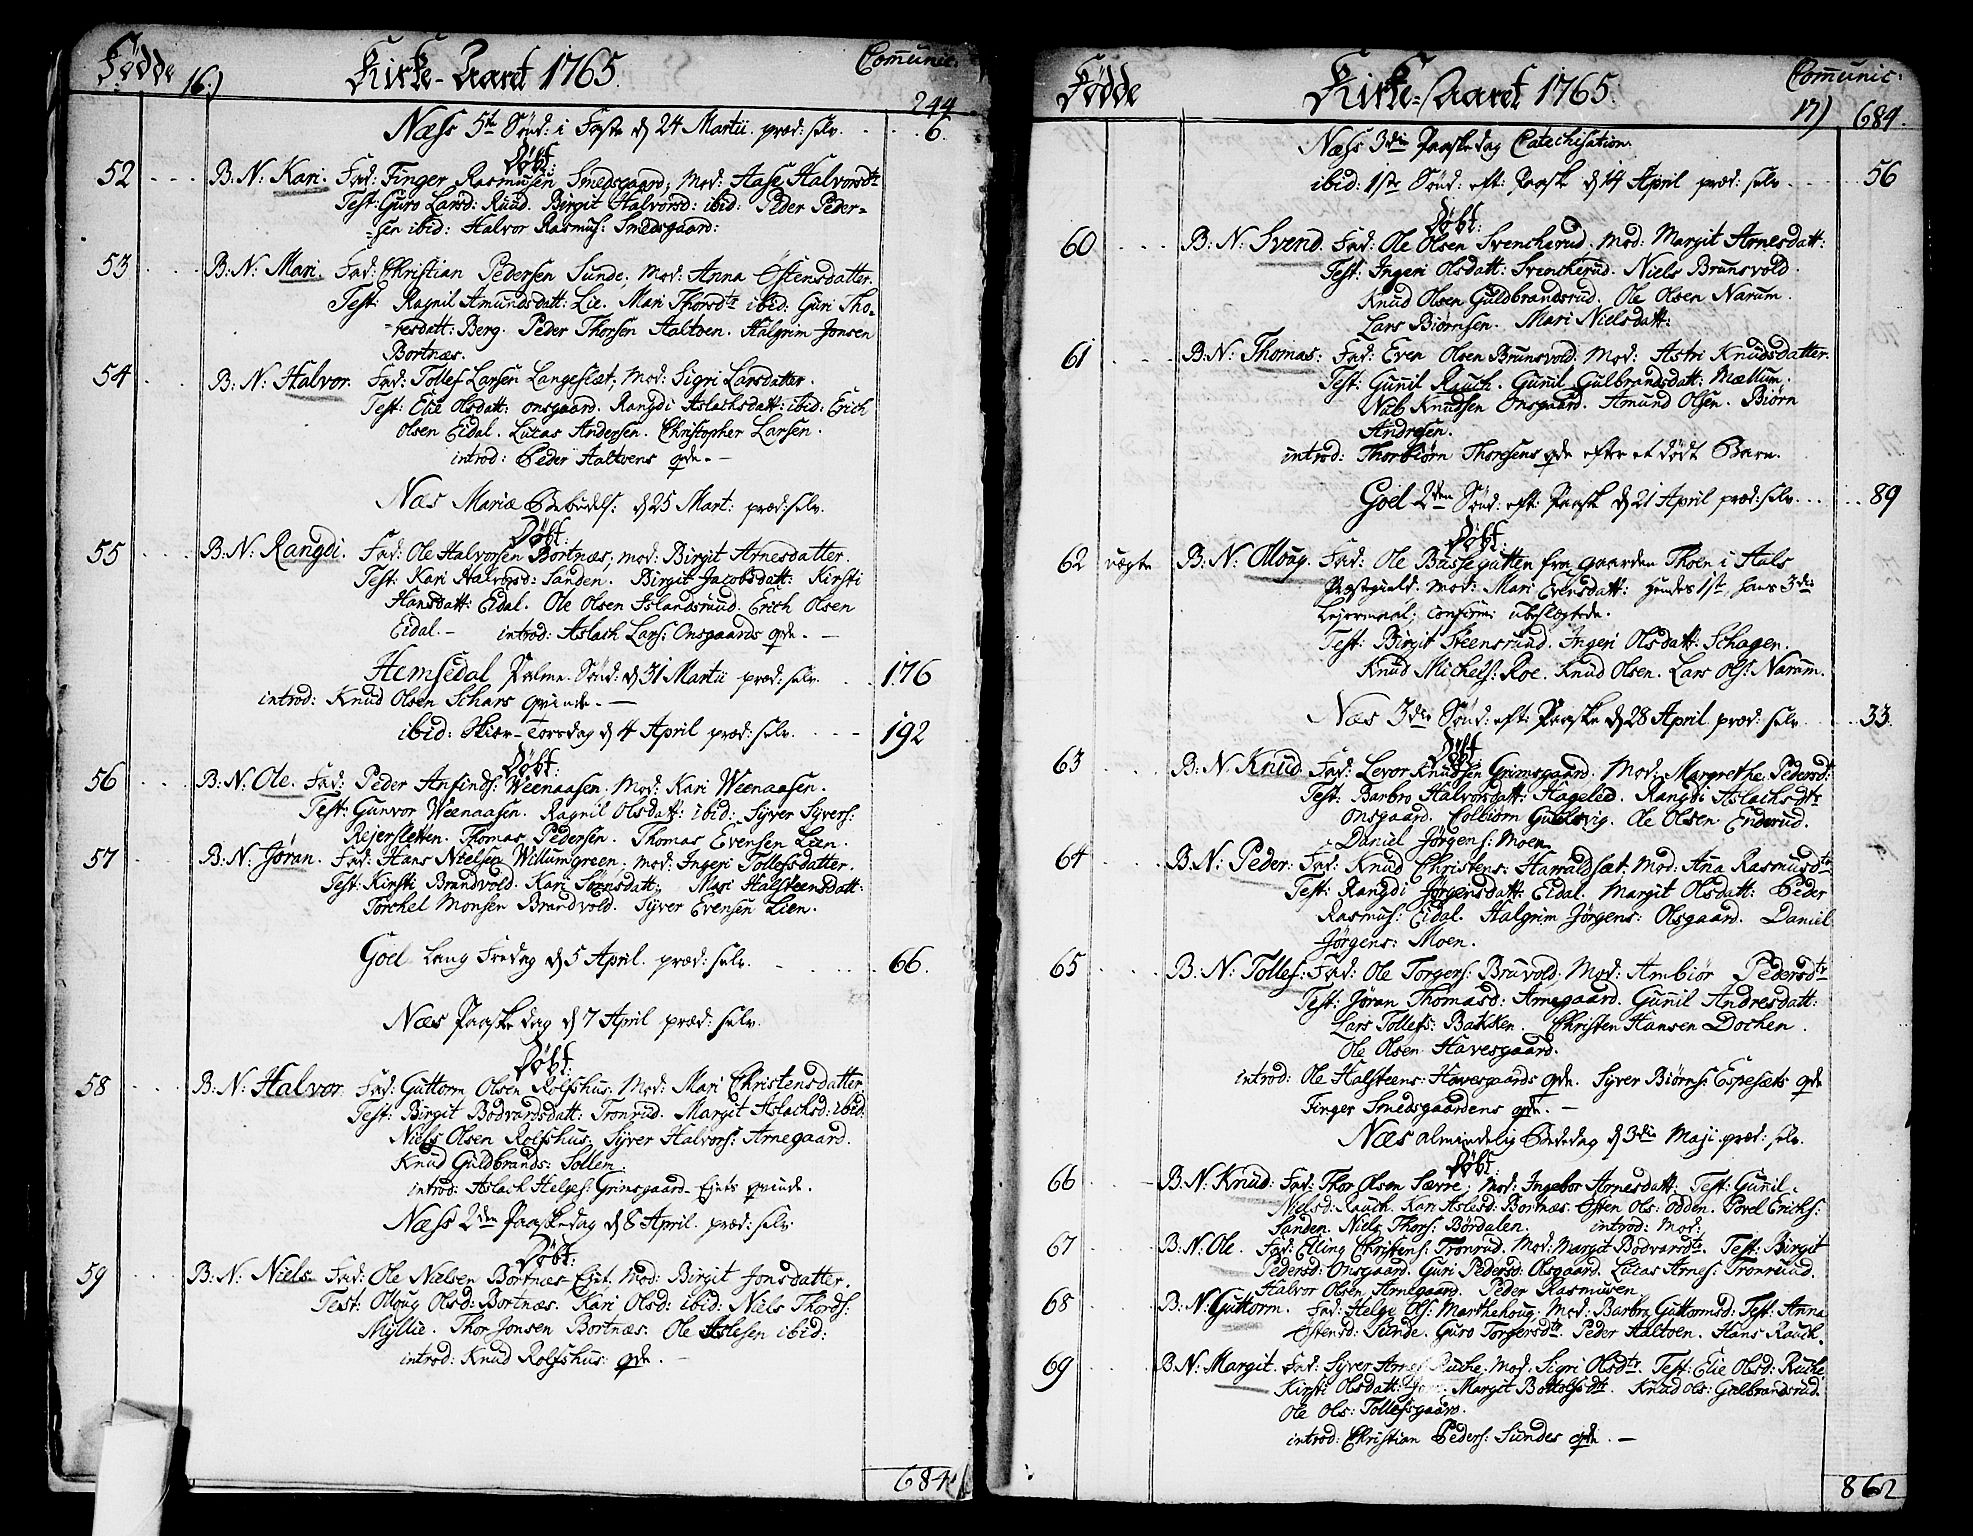 Fødde 16.) Kirke-Aaret 1765. Comunic:
244
Næss 5te Sønd: i Faste d 24 Martii præd: selv. 6.
Døbt:
52 B: N: Kari. Fad: Finger Rasmusen Smedsgaard; Mod: Aase Halvorsdtr
Test: Guro Larsd: Ruud. Birgit Halvorsd: ibid: Peder Peder=
=sen ibid: Halvor Rasmus: Smedsgaard:
53 B: N: Mari. Fad: Christian Pedersen Sunde; Mod: Anna Østensdatter.
Test: Ragnil Amundsdatt: Lie. Mari Thorsdtr ibid: Guri Tho=
=resdatt: Berg. Peder Thorsen Aaltven. Halgrim Jonsen
Bortnæs.
54 B: N: Halvor. Fad: Tollef Larsen Langesæt; Mod: Sigri Larsdatter.
Test: Elie Olsdatt: Onsgaard. Rangdi Aslachsdatt: ibid: Erich
Olsen Eidal. Lucas Andersen. Christopher Larsen.
introd: Peder Aaltvens qde. —
Næs Mariæ Bebudels: d 25 Mart: præd: selv.
Døbt:
55 B: N: Rangdi. Fad: Ole Halvorsen Bortnæs; mod: Birgit Arnesdatter.
Test: Kari Halvorsd: Sanden. Birgit Jacobsdatt: Kirsti
Hansdatt: Eidal. Ole Olsen Islandsruud. Erich Olsen
Eidal. — introd: Aslach Lars: Onsgaards qde. —
Hemsedal Palme-Sønd: d 31 Martii præd: selv. 176
introd: Knud Olsen Schars qvinde. —
ibid: Skiær-Torsdag d 4 April præd: selv. 192
Døbt:
56 B: N: Ole. Fad: Peder Anfinds: Weenaasen. Mod: Kari Weenaasen.
Test: Gunvor Weenaasen. Ragnil Olsdatt: ibid: Syver Syvers:
Rejersletten. Thomas Pedersen. Thomas Evensen Lien.
57 B: N: Jøran. Fad: Hans Nielsen Willumgreen. mod: Ingeri Tollofsdatter.
Test: Kirsti Brandvold. Kari Sørensdatt: Mari Halsteensdatt:
Torchel Monsen Brandvold. Syver Evensen Lien.
Goel Lang Fredag d 5 April. præd: selv. 66.
Næs Paaske dag d 7 April præd: selv.
Døbt:
58 B: N: Halvor. Fad: Guttorm Olsen Rolfshus: Mod: Mari Christensdatter.
Test: Birgit Bodvardsdatt: Tronrud. Margit Aslachsd: ibid:
Niels Olsen Rolfshus. Syver Halvors: Arnegaard.
Knud Guldbrands: Sollem.
introd: Aslach Helges: Grimsgaard-Ejets qvinde.
Næss 2den Paaskedag d 8 April. præd: selv:
Døbt:
59 B: N: Niels. Fad: Ole Nielsen Bortnæs Ejet. Mod: Birgit Jonsdatter.
Test: Olloug Olsd: Bortnæs. Kari Olsd: ibid: Niels Thords:
Myllie. Thor Jonsen Bortnæs. Ole Aslesen ibid:
introd: Knud Rolfshus: qde. —
684
Fødde Kirke-Aaret 1765. Comunic:
17) 684.
Næss 3die Paaskedag Catechisation.
ibid: 1ste Sønd: eft: Paask d 14 April præd: selv 56
Døbt:
60 B: N: Svend. Fad: Ole Olsen Svencherud. Mod: Margit Arnesdatt:
Test: Ingeri Olsdatt: Svencherud. Niels Brunsvold.
Knud Olsen Guldbrandsrud. Ole Olsen Narum.
Lars Biørnsen. Mari Nielsdatt:
61 B: N: Thomas: Fad: Even Olsen Brunsvold: Mod: Astri Knudsdatter.
Test: Gunil Rauch. Gunil Gulbrandsdatt: Mællum.
Nub Knudsen Onsgaard. Amund Olsen. Biørn
Andresen.
introd: Thorbiørn Thoresens qde efter et dødt Barn.
Goel 2den Sønd: eft: Paask d 21 April præd: selv. 89
Døbt:
62 uægte B: N: Olloug. Fad: Ole Bussegutten fra gaarden Thoen i Aals
Præstegield. Mod: Mari Evensdatt: hendes 1ste, hans 3die
Lejermaal; confirm: ubeslægtede.
Test: Birgit Steensrund. Ingeri Olsdatt: Schagen.
Knud Michels: Roe. Knud Olsen. Lars Ols: Narum.
Næs 3die Sønd: eft: Paaske d 28 April præd: selv 33.
Døbt
63 B: N: Knud. Fad: Levor Knudsen Grimsgaard. Mod: Margrethe Pedersdt:
Test: Barbro Halvorsdatt: Hagelid. Rangdi Aslachsdtr
Onsgaard. Colbiørn Guldsvig. Ole Olsen Enderud.
Daniel Jørgens: Moen.
64 B: N: Peder. Fad: Knud Christens: Harraldset. Mod: Ana Rasmusdtr
Test: Rangdi Jørgensdatt: Eidal. Margit Olsdatt: Peder
Rasmus: Eidal. Halgrim Jørgens: Olsgaard. Daniel
Jørgens: Moen.
65 B: N: Tollef: Fad: Ole Torgers: Bruvold; Mod: Ambiør Pedersdtr
Test: Jøran Thomasd: Arnegaard. Gunil Andresdatt:
Lars Tollefs: Bakken. Christen Hansen Dochen.
Ole Olsen Havesgaard.
introd: Ole Halsteens: Havesgaards qde. Syver Biørns: Espesæts qde
Finger Smedsgaardens qde. —
Næs almindelig Bededag d 3die Maji præd: selv.
Døbt:
66 B. N: Knud. Fad: Thor Olsen Sævre; Mod: Ingebor Arnesdatt: Test: Gunil
Nielsd: Rauch. Kari Aslesd: Bortnæs. Østen Ols: Odden. Povel Erichs:
Sanden. Niels Thors: Børdalen. introd: Mod:
67 B: N: Ole. Fad: Elling Christens: Tronrud. Mod: Margit Bodvarsdtr. Test: Birgit
Pedersd: Onsgaard. Guri Pedersd: Olsgaard. Lucas Arnes: Tronruud.
Halvor Olsen Arnegaard. Peder Rasmusen
68 B: N: Guttorm. Fad: Helge Ols: Marthehoug; Mod: Barbro Guttormsd: Test: Anna
Østensd: Sunde. Guro Torgersdtr. Peder Aaltven. Hans Rauch.
69 B: N: Margit. Fad: Syver Arnes: Ruche, Mod: Sigri Olsdtr. Test: Elie Olsd: Ruche
Kirsti Olsdatt: Margit Bottolfsdtr. Knud Ols: Gulbrandsrud.
Ole Ols: Tollefsgaard.
introd: Christian Peders: Sundes qde. —
862